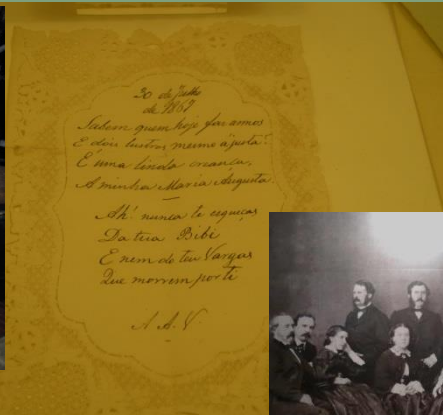 30 de Julho
de 1867
Sabem quem hoje faz annos
E dois lustros, mesmo á justa?
É uma linda creança,
A minha Maria Augusta.
Ah! nunca te esqueças
Da tua Bibi
E nem do teu Vargas
Que morrem por ti
A. A. V.